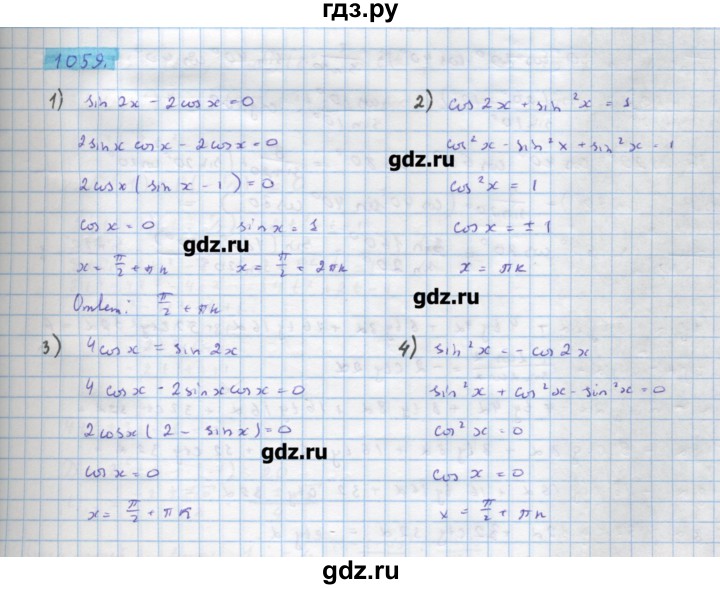 гдз.ру
1059.
1) sin 2x - 2cosx = 0
2sinx cosx - 2cosx = 0
2cosx (sin x - 1) = 0
cosx = 0 sinx = 1
x = π/2 + πn x = π/2 = 2πk
Ответ: π/2 + πn
2) cos 2x + sin²x = 1
cos²x - sin²x + sin²x = 1
cos²x = 1
cosx = ± 1
x = πk
3) 4cosx = sin 2x
4cosx - 2sinxcosx = 0
2cosx (2 - sinx) = 0
cosx = 0
x = π/2 + πk
4) sin²x = - cos2x
sin²x + cos²x - sin²x = 0
cos²x = 0
cos x = 0
x = π/2 + πn
gdz.ru
gdz.ru
gdz.ru
gdz.ru
gdz.ru